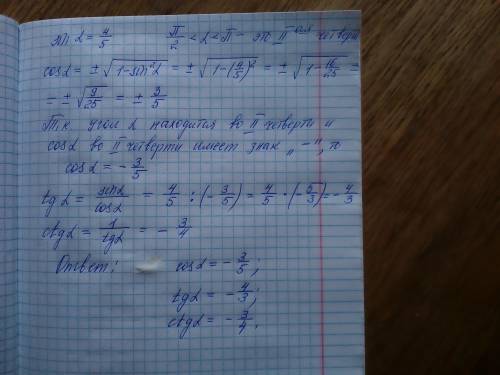 sin α = 4/5   π/2 < α < π - это II ая четверть
cos α = ± √(1 - sin²α) = ± √(1 - (4/5)²) = ± √(1 - 16/25) =
= ± √(9/25) = ± 3/5
Т.к угол α находится во II четверти и
cos α во II четверти имеет знак „ - ”, то
cos α = - 3/5
tg α = sin α/cos α = 4/5 : (- 3/5) = 4/5 · (- 5/3) = - 4/3
ctg α = 1/tg α = - 3/4
Ответ: cos α = - 3/5;
tg α = - 4/3;
ctg α = - 3/4.